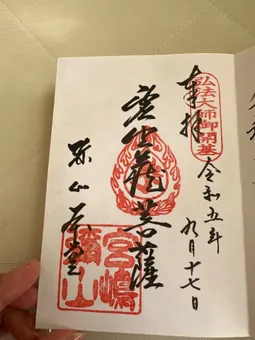 弘法大師御開基
奉拝
令和五年
九月十七日
虚空蔵菩薩
弥山本堂
宮嶋
彌山